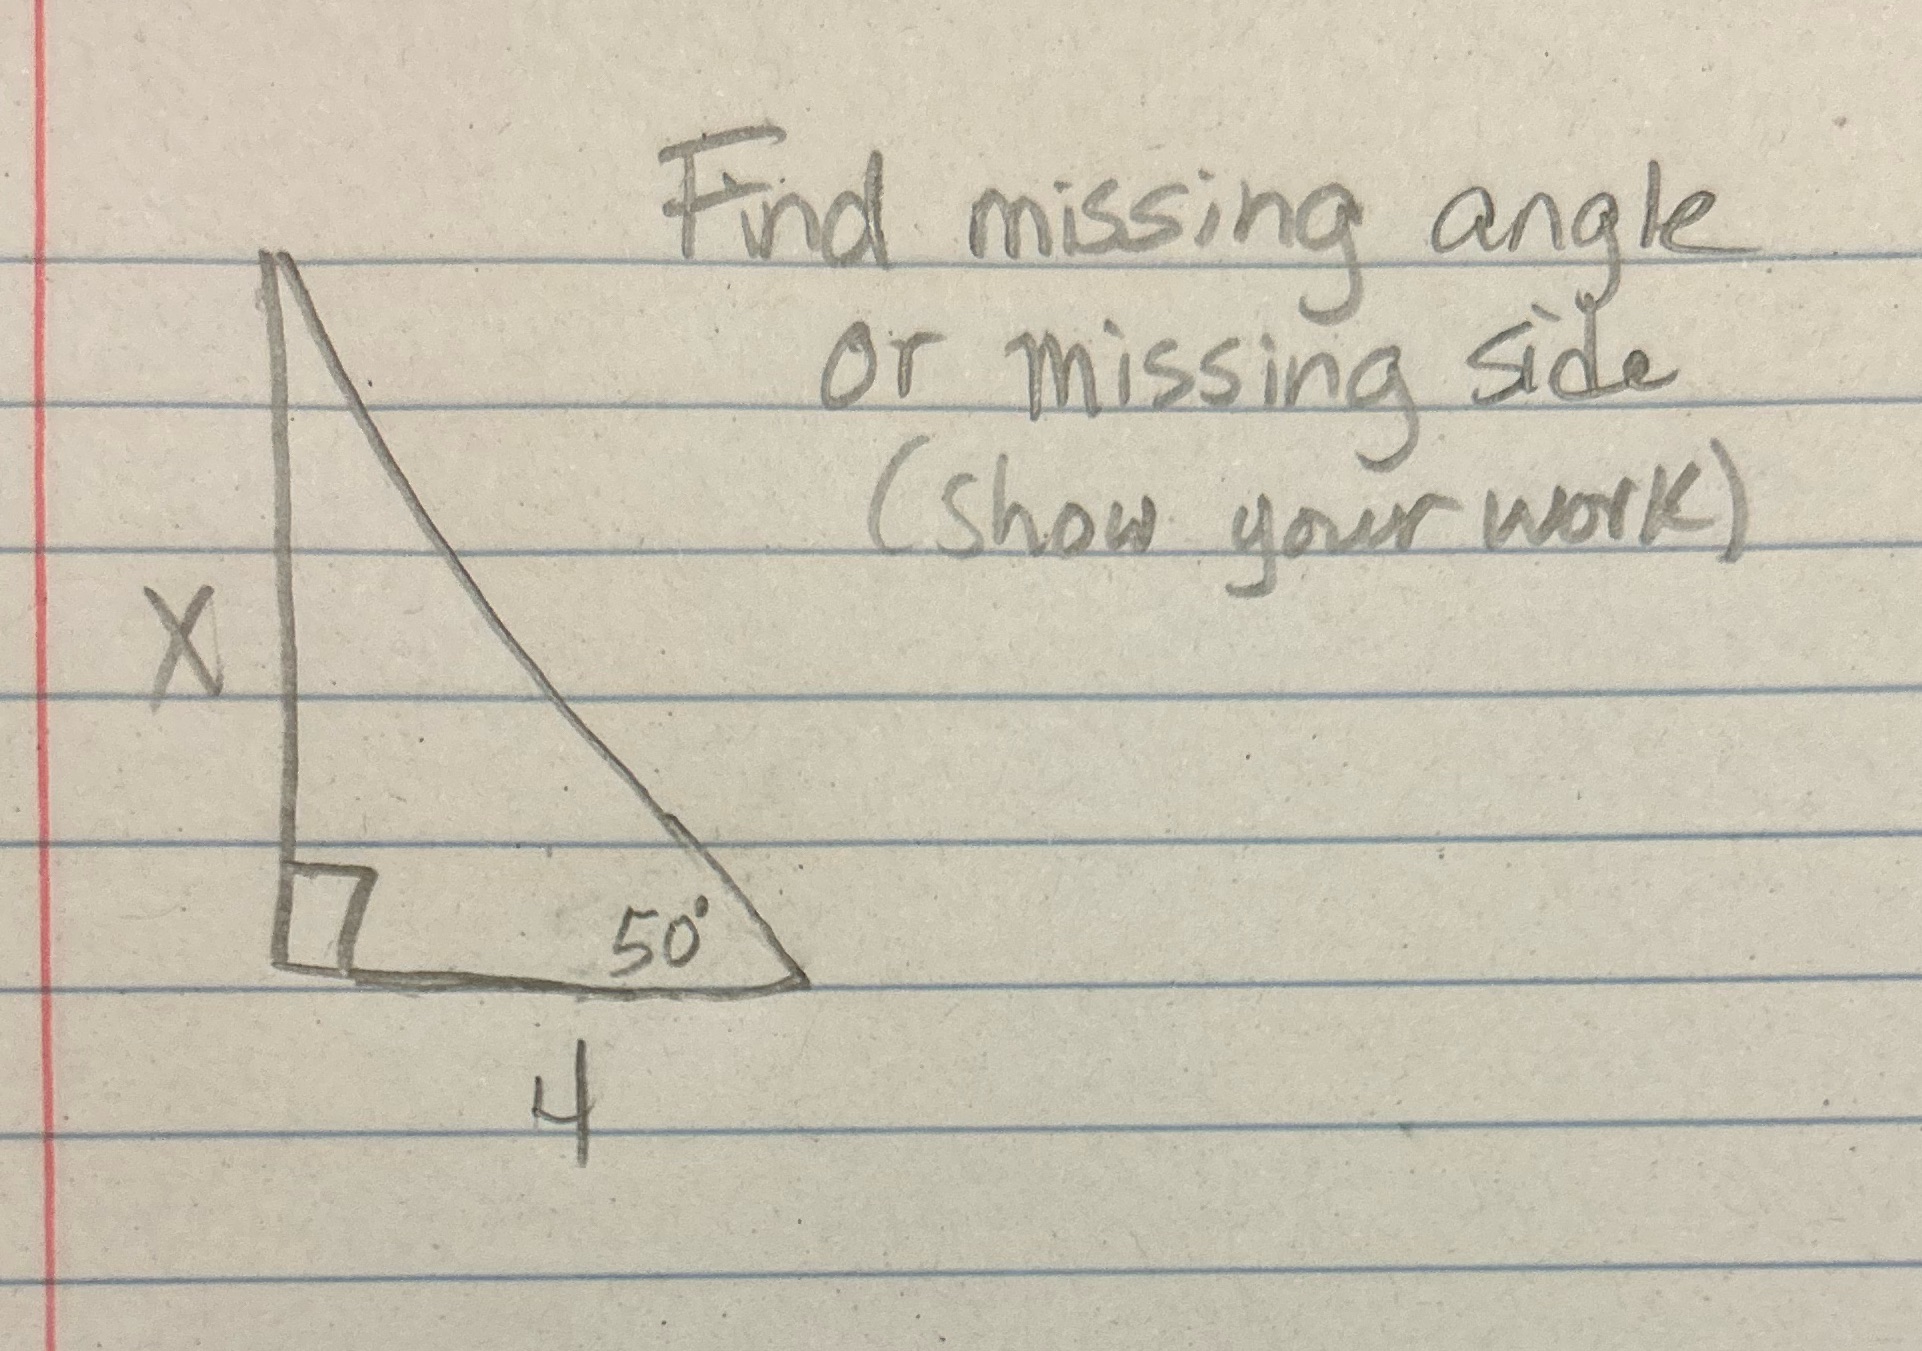 Find missing angle
or missing side
(show your work)
X
50°
4